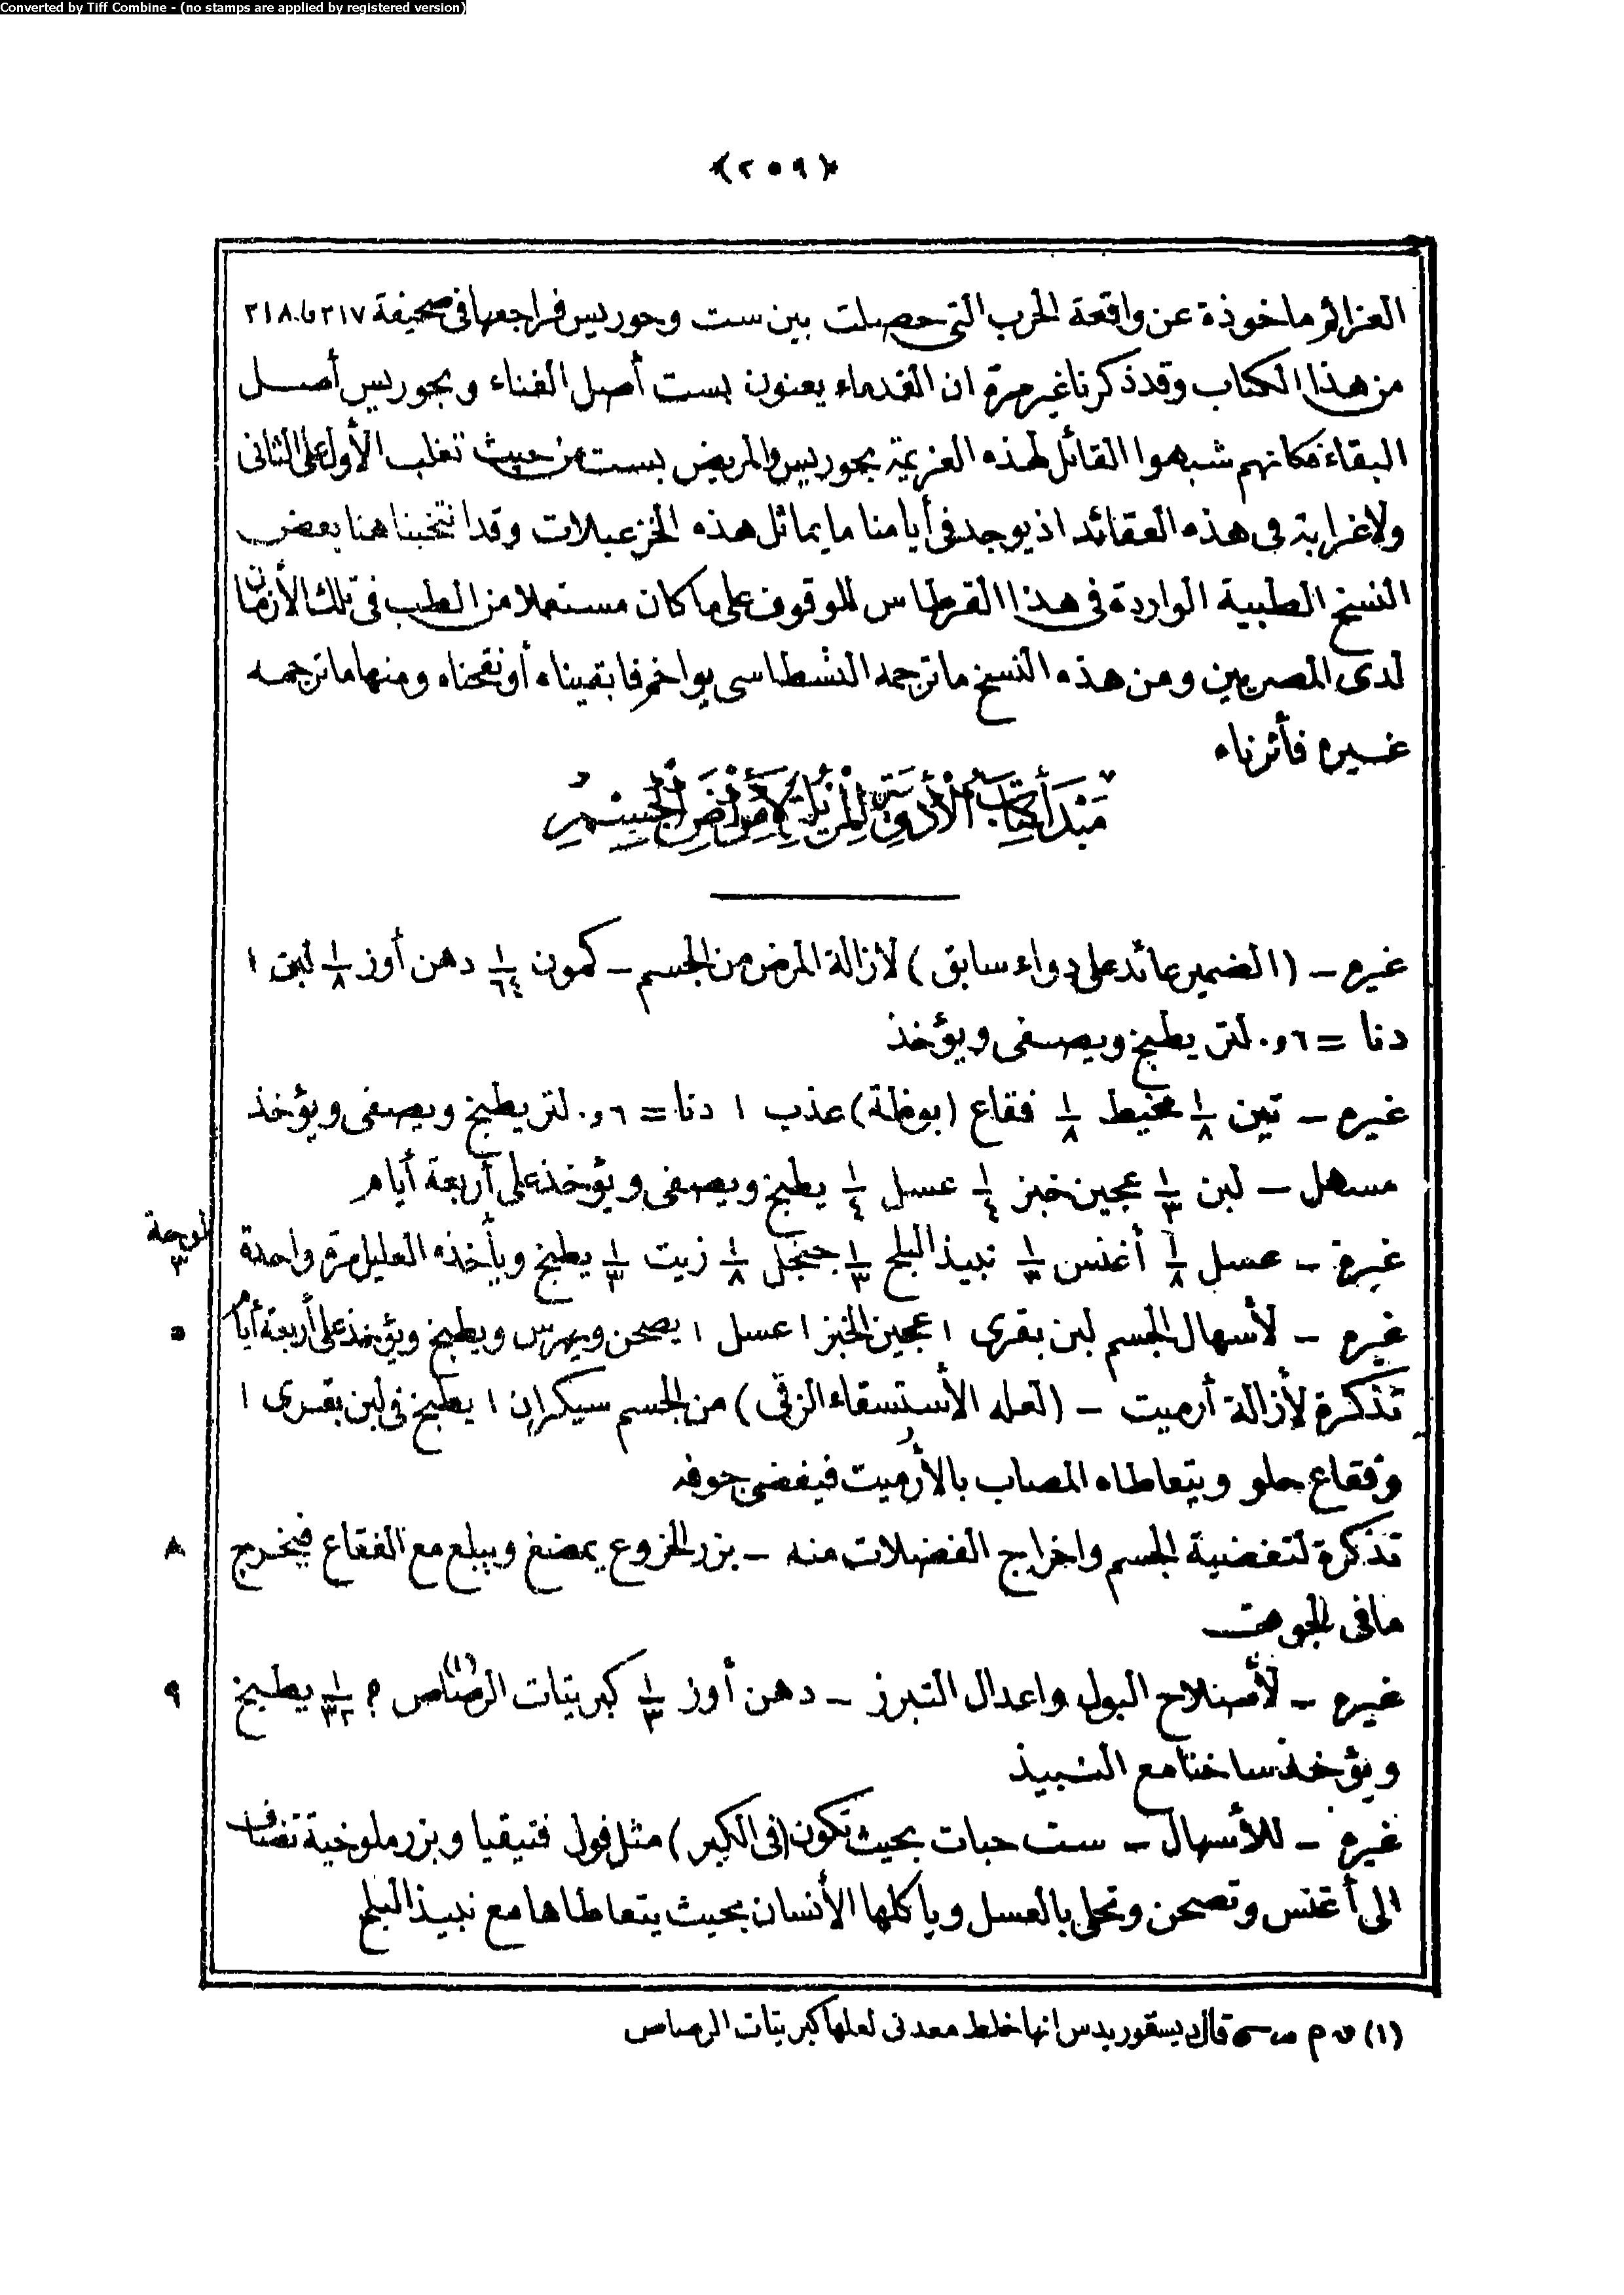 Converted by Tiff Combine - (no stamps are applied by registered version)
﴿٢٥٩﴾
العزائم ماخوذة عن واقعة الحرب التى حصلت بين ست وحوريس فراجعها فى صحيفة ٢١٧ و٢١٨
من هذا الكتاب وقد ذكرنا غير مرة ان القدماء يعنون بست أصل الفناء وبحوريس أصل
البقاء فكانهم شبهوا القائل لهذه العزيمة بحوريس والمريض بست من حيث تغلب الأول على الثانى
ولاغرابة فى هذه العقائد اذ يوجد فى أيامنا ما يماثل هذه الخزعبلات وقد انتخبنا هنا بعض
النسخ الطبية الواردة فى هذا القرطاس للوقوف على ما كان مستعملا من الطب فى تلك الأزمان
لدى المصريين ومن هذه النسخ ما ترجمه النشطاسى يواخم فابقيناه أو نقحناه ومنها ما ترجمه
غيره فأثرناه
مَبْدَأُ كِتَابِ الْأَدْوِيَةِ الْمُزِيلَةِ لِأَمْرَاضِ الْجِسْمِ
غيره ـ (الضمير عائد على دواء سابق) لأزالة المرض من الجسم ـ كمون ١/٦٤ دهن أوز ١/٨ لبن ١
دنا = ٦و٠ لتر يطبخ ويصفى ويؤخذ
غيره ـ تين ١/٨ مخيط ١/٨ فقاع (بوظة) عذب ١ دنا = ٦و٠ لتر يطبخ ويصفى ويؤخذ
مسهل ـ لبن ١/٣ عجين خبز ١/٤ عسل ١/٤ يطبخ ويصفى ويؤخذ على أربعة أيام
لوحة ٣
غيره ـ عسل ١/٨ أغنس ١/٣ نبيذ البلح ١/٣ جنجل ١/٨ زيت ١/٣ يطبخ ويأخذه العليل مرة واحدة
٥
غيره ـ لأسهال الجسم لبن بقرى ١ عجين الخبز ١ عسل ١ يصحن ويهرس ويطبخ ويؤخذ على أربعة أيام
تذكرة لأزالة أرميت ـ (لعله الأستسقاء الزقى) من الجسم سيكران ١ يطبخ فى لبن بقرى ١
وفقاع حلو ويتعاطاه المصاب بالأرميت فيفضى جوفه
٨
تذكرة لتفضية الجسم واخراج الفضلات منه ـ بزر الخروع يمضغ ويبلع مع الفقاع فيخرج
مافى الجوف
٩
غيره ـ لأصلاح البول واعدال التبرز ـ دهن أوز ١/٣ كبريتات الرصاص (١) ؟ ١/٣٢ يطبخ
ويؤخذ ساخنا مع النبيذ
غيره ـ للأسهال ـ ست حبات بحيث تكون (فى الكبر) مثل فول فنيقيا وبزر ملوخية تضاف
الى أغنس وتصحن وتحلى بالعسل ويأكلها الأنسان بحيث يتعاطاها مع نبيذ البلح
(١) قال ديسقوريدس انها خلط معدنى لعلها كبريتات الرصاص